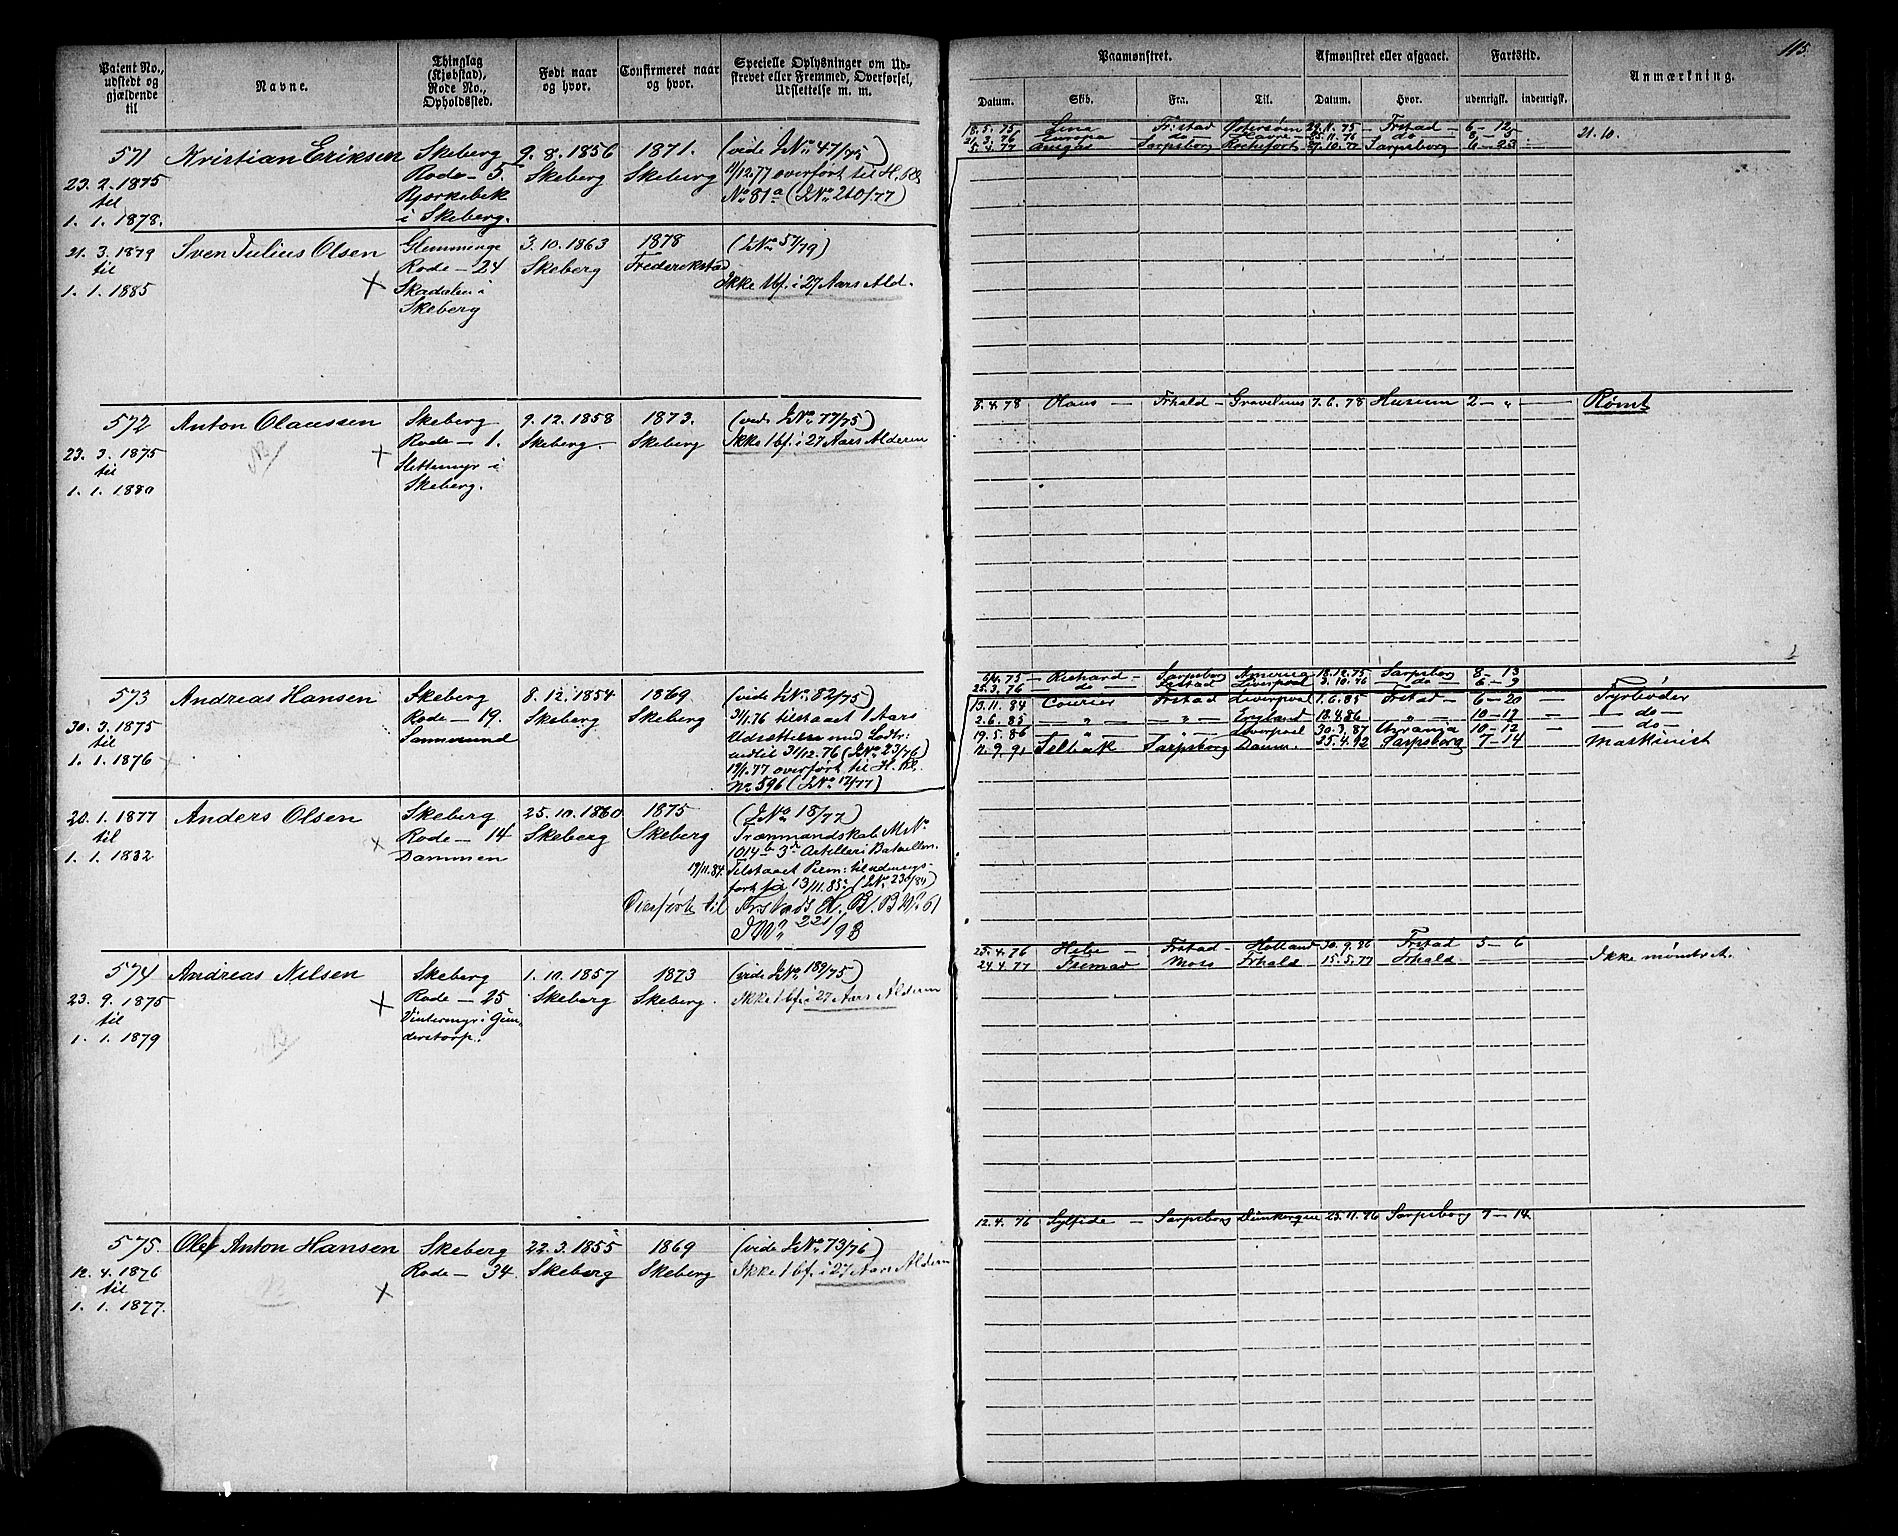 115.
Patent No., udstedt og gjældende til
Navne.
Thinglag (Kjøbstad), Rode No., Opholdssted.
Født naar og hvor.
Confirmeret naar og hvor.
Specielle Oplysninger om Udskrevet eller Fremmed, Overførsel, Udslettelse m. m.
Paamønstret.
Afmønstret eller afgaaet.
Fartstid.
Anmærkning.
Datum. Skib. Fra. Til. Datum. Hvor. udenrigsk. indenrigsk.
571 Kristian Eriksen Skeberg 9. 8. 1856 1871. (vide J.No. 47/75)
23. 2. 1875 Rode - 5. Skeberg Skeberg 11/12.77 overført til H. Rl.
til Bjørkebek No. 81a (J.No. 210/77)
1. 1. 1878. i Skeberg.
18.5.75 Lena Fr.stad Østersøen 29.11.75 Frstad 6-12
21.3.76 Europa do Havre 25.11.76 do 8-5 21.10.
5.4.77 Ansgar Sarpsborg Rochefort 27.10.77 Sarpsborg 6-23
21. 3. 1879 Sven Julius Olsen Glemminge 3. 10. 1863 1878 (J.No. 57/79)
til Rode - 24 Skeberg Frederikstad
1. 1. 1885 × Skadalen i Ikke 1 bf. i 27 Aars Ald.
Skeberg
572 Anton Olaussen Skeberg 9. 12. 1858 1873. (vide J.No. 77/75)
23. 3. 1875 Rode - 1. Skeberg. Skeberg Ikke 1 bf. i 27 Aars Alderen
til × Slettemyr i
1. 1. 1880 Skeberg.
8.4.78 Olaus Frhald Gravelines 7.6.78 Husum 2 - " Rømt
573 Andreas Hansen Skeberg 8. 12. 1854 1869 (vide J.No. 82/75)
30. 3. 1875 Rode - 19. Skeberg Skeberg 31/1.76 tilstaaet 1 Aars
til Sannesund Udsættelse med Lodtr:
1. 1. 1876 × indtil 31/12.76 (J.No. 23/76)
19/1.77 overført til H. Rl.
No. 596 (J.No. 17/77)
6/4.75 Richard Sarpsborg America 18.12.75 Sarpsborg 8-13
25.3.76 do Frstad Liverpool 3.10.76 do 6-9
20. 1. 1877 Anders Olsen Skeberg 25. 10. 1860 1875 (J.No. 18/77)
til Rode - 14 Skeberg Skeberg Trænmandskab M.No.
1. 1. 1882 × Dammen 1014b 3de Artilleri Bataillon.
19/11.84. Tilstaaet Perm: til udenrigs-
fart fra 13/11.85. (J.No. 230/84)
Overført til Frstads H. Bl. B No. 61
J.No. 221/93
13.11.84 Courier Frstad Liverpool 1.6.85 Frstad 6-20 Fyrbøder
2.6.85 " " England 18.4.86 " 10-17 do
19.5.86 " " Liverpool 30.3.87 10-12 do
12.9.91 Selbak Sarpsborg Danm. 25.4.92 Sarpsborg 7-14 Maskinist
574 Andreas Nilsen Skeberg 1. 10. 1857 1873 (vide J.No. 189/75)
23. 9. 1875 Rode - 25 Skeberg Skeberg. Ikke 1 bf. i 27 Aars Alderen
til × Vintermyr i Gun-
1. 1. 1879 derstorp.
25.4.76 Hebe Frstad Holland 30.9.86 Frstad 5-6
24.4.77 Fremad Moss Frhald 15.5.77 Frhald Ikke mønstret.
575. Olaf Anton Hansen Skeberg 22. 3. 1855 1869 (vide J.No. 73/76)
12. 4. 1876 Rode - 34 Skeberg Skeberg Ikke 1 bf. i 27 Aars Alderen
til ×
1. 1. 1877.
12.4.76 Sylfide Sarpsborg Dunkerque 25.11.76 Sarpsborg 7-14